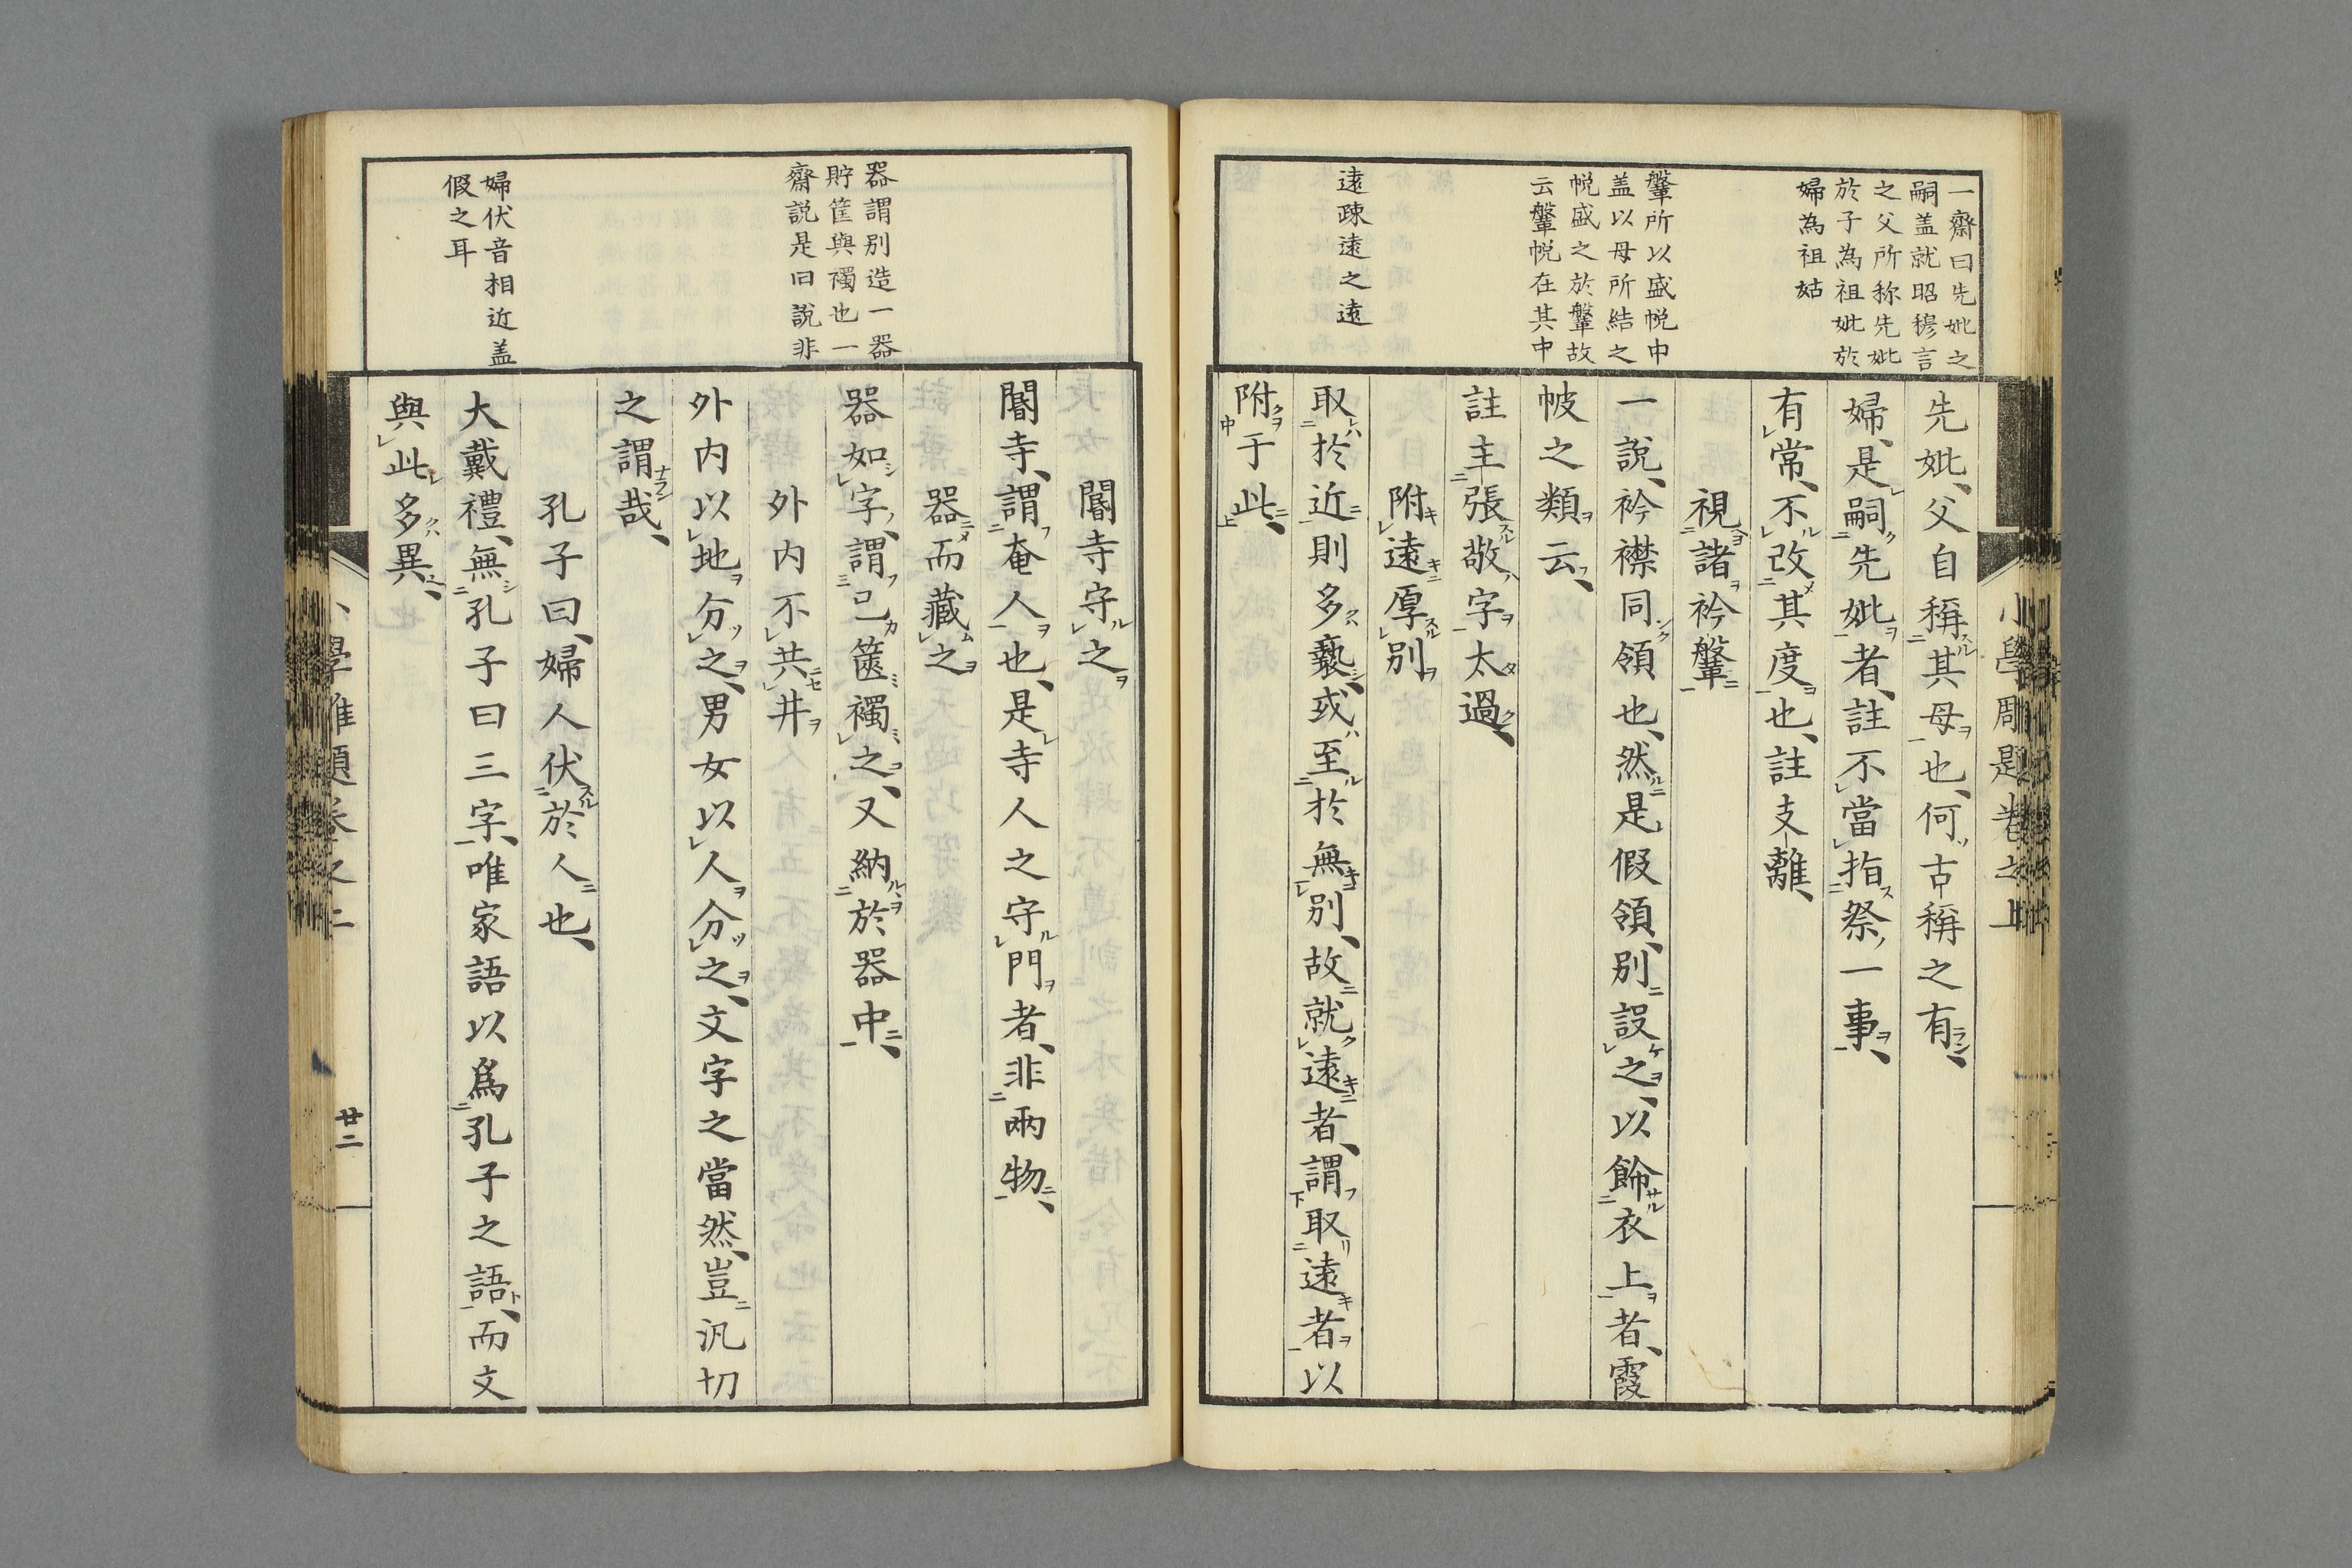 一齋曰先妣之
嗣盖就昭穆言
之父所称先妣
於子為祖妣於
婦為祖姑
鞶所以盛帨巾
盖以母所結之
帨盛之於鞶故
云鞶帨在其中
遠疎遠之遠
先妣、父自稱其母也、何古稱之有、
婦、是嗣先妣者、註不當指祭一事、
有常、不改其度也、註支離、
視諸衿鞶
一說、衿襟同領也、然是假領、別設之、以餙衣上者、霞
帔之類云、
註主張敬字太過、
附遠厚別
取於近則多褻、或至於無別、故就遠者、謂取遠者以
附于此、
器謂別造一器
貯筐與襡也一
齋説是旧說非
婦伏音相近盖
假之耳
閽寺守之
閽寺、謂奄人也、是寺人之守門者、非兩物、
器而藏之
器如字、謂已篋襡之、又納於器中、
外内不共井
外内以地分之、男女以人分之、文字之當然、豈汎切
之謂哉、
孔子曰、婦人伏於人也、
大戴禮、無孔子曰三字、唯家語以爲孔子之語、而文
與此多異、
廿二